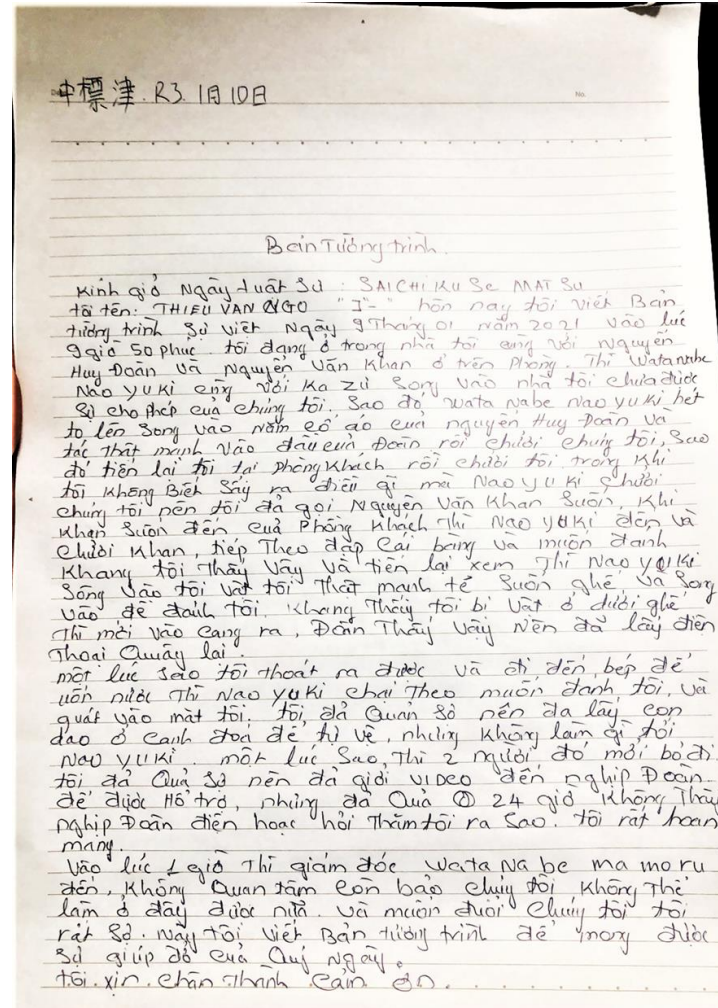 中標津.R3.1月10日
No.
Bản Tường trình.
Kính giở Ngày Luật Sư : SAICHI KU SE MAT SU
tôi tên: THIEU VAN NGO "I-" hôn nay tôi viết Bản
tường trình Sự viết Ngày 9 Tháng 01 Năm 2021 vào lúc
9 giờ 50 phuc. tôi đang ở trong nhà tôi cùng với Nguyễn
Huy Đoàn và Nguyễn Văn Khan ở trên Phòng. Thì Watanabe
Nao yu ki cùng với Ka zu Song vào nhà tôi chưa được
Sự cho phép của chúng tôi. Sao đó Wata Nabe Nao yu ki hét
to lên Song vào nắm cổ áo của nguyễn Huy Đoàn và
tác Thật mạnh vào đầu của Đoàn rồi chười chúng tôi, Sao
đó tiến lại tôi tại phòng khách rồi chười tôi trong khi
tôi không Biết Sảy ra điều gì mà Nao yu ki chười
chúng tôi nên tôi đã gọi Nguyễn Văn Khan Suốn, Khi
Khan Suốn đến cuả Phòng Khách Thì Nao yuki đến và
chười Khan, tiếp Theo đập Cái bàng và muốn đanh
Khang tôi Thấy Vây và tiến lại xem Thì Nao you ki
Sông vào tôi vật tôi Thật manh tế Suốn ghế và Song
vào để đanh tôi. Khang Thấy tôi bị Vật ở dưới ghế
Thì mới vào cang ra, Đoàn Thấy Vậy Nên đã lấy điên
Thoại Quay lai.
một lúc Sao tôi thoát ra được và đi đến bếp để
uốn nước Thì Nao yuki chại Theo muốn đanh tôi, và
quát vào mặt tôi. tôi đã Quan Sợ nên đa lấy con
dao ở canh đoa để tự vệ, nhưng không làm gì tới
Nao yuki. một lúc Sao, Thì 2 người đó mới bỏ đi
tôi đã Quá Sợ nên đã giởi VIDEO đến nghịp Đoàn
để được Hổ trợ, nhưng đã Quá 24 giờ Không Thấy
Nghịp Đoàn điện hoặc hỏi Thăm tôi ra Sao. tôi rất hoan
mang.
Vào lúc 1 giờ Thì giám đốc Wata Na be ma mo ru
đến, Không Quan tâm còn bảo chúng tôi Không Thể
làm ở đây được nữa. Và muốn đuổi chúng tôi tôi
rất Sợ. Nay tôi viết Bản tường trình để mong được
Sự giúp đỡ của Quý Ngày.
tôi xin chân Thành Cảm ơn.